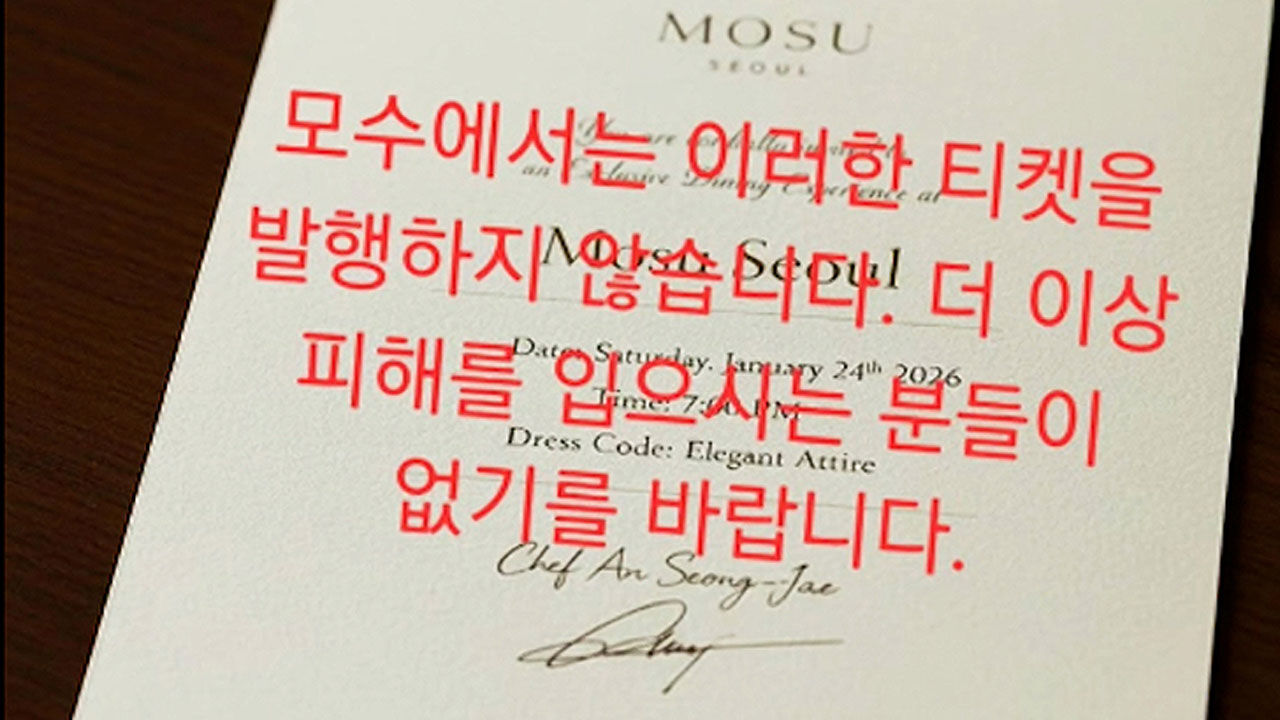 MOSU
SEOUL
You are cordially invited to
an Exclusive Dining Experience at
Mosu Seoul
Date: Saturday, January 24th 2026
Time: 7:00 PM
Dress Code: Elegant Attire
Chef An Seong-Jae
모수에서는 이러한 티켓을
발행하지 않습니다. 더 이상
피해를 입으시는 분들이
없기를 바랍니다.